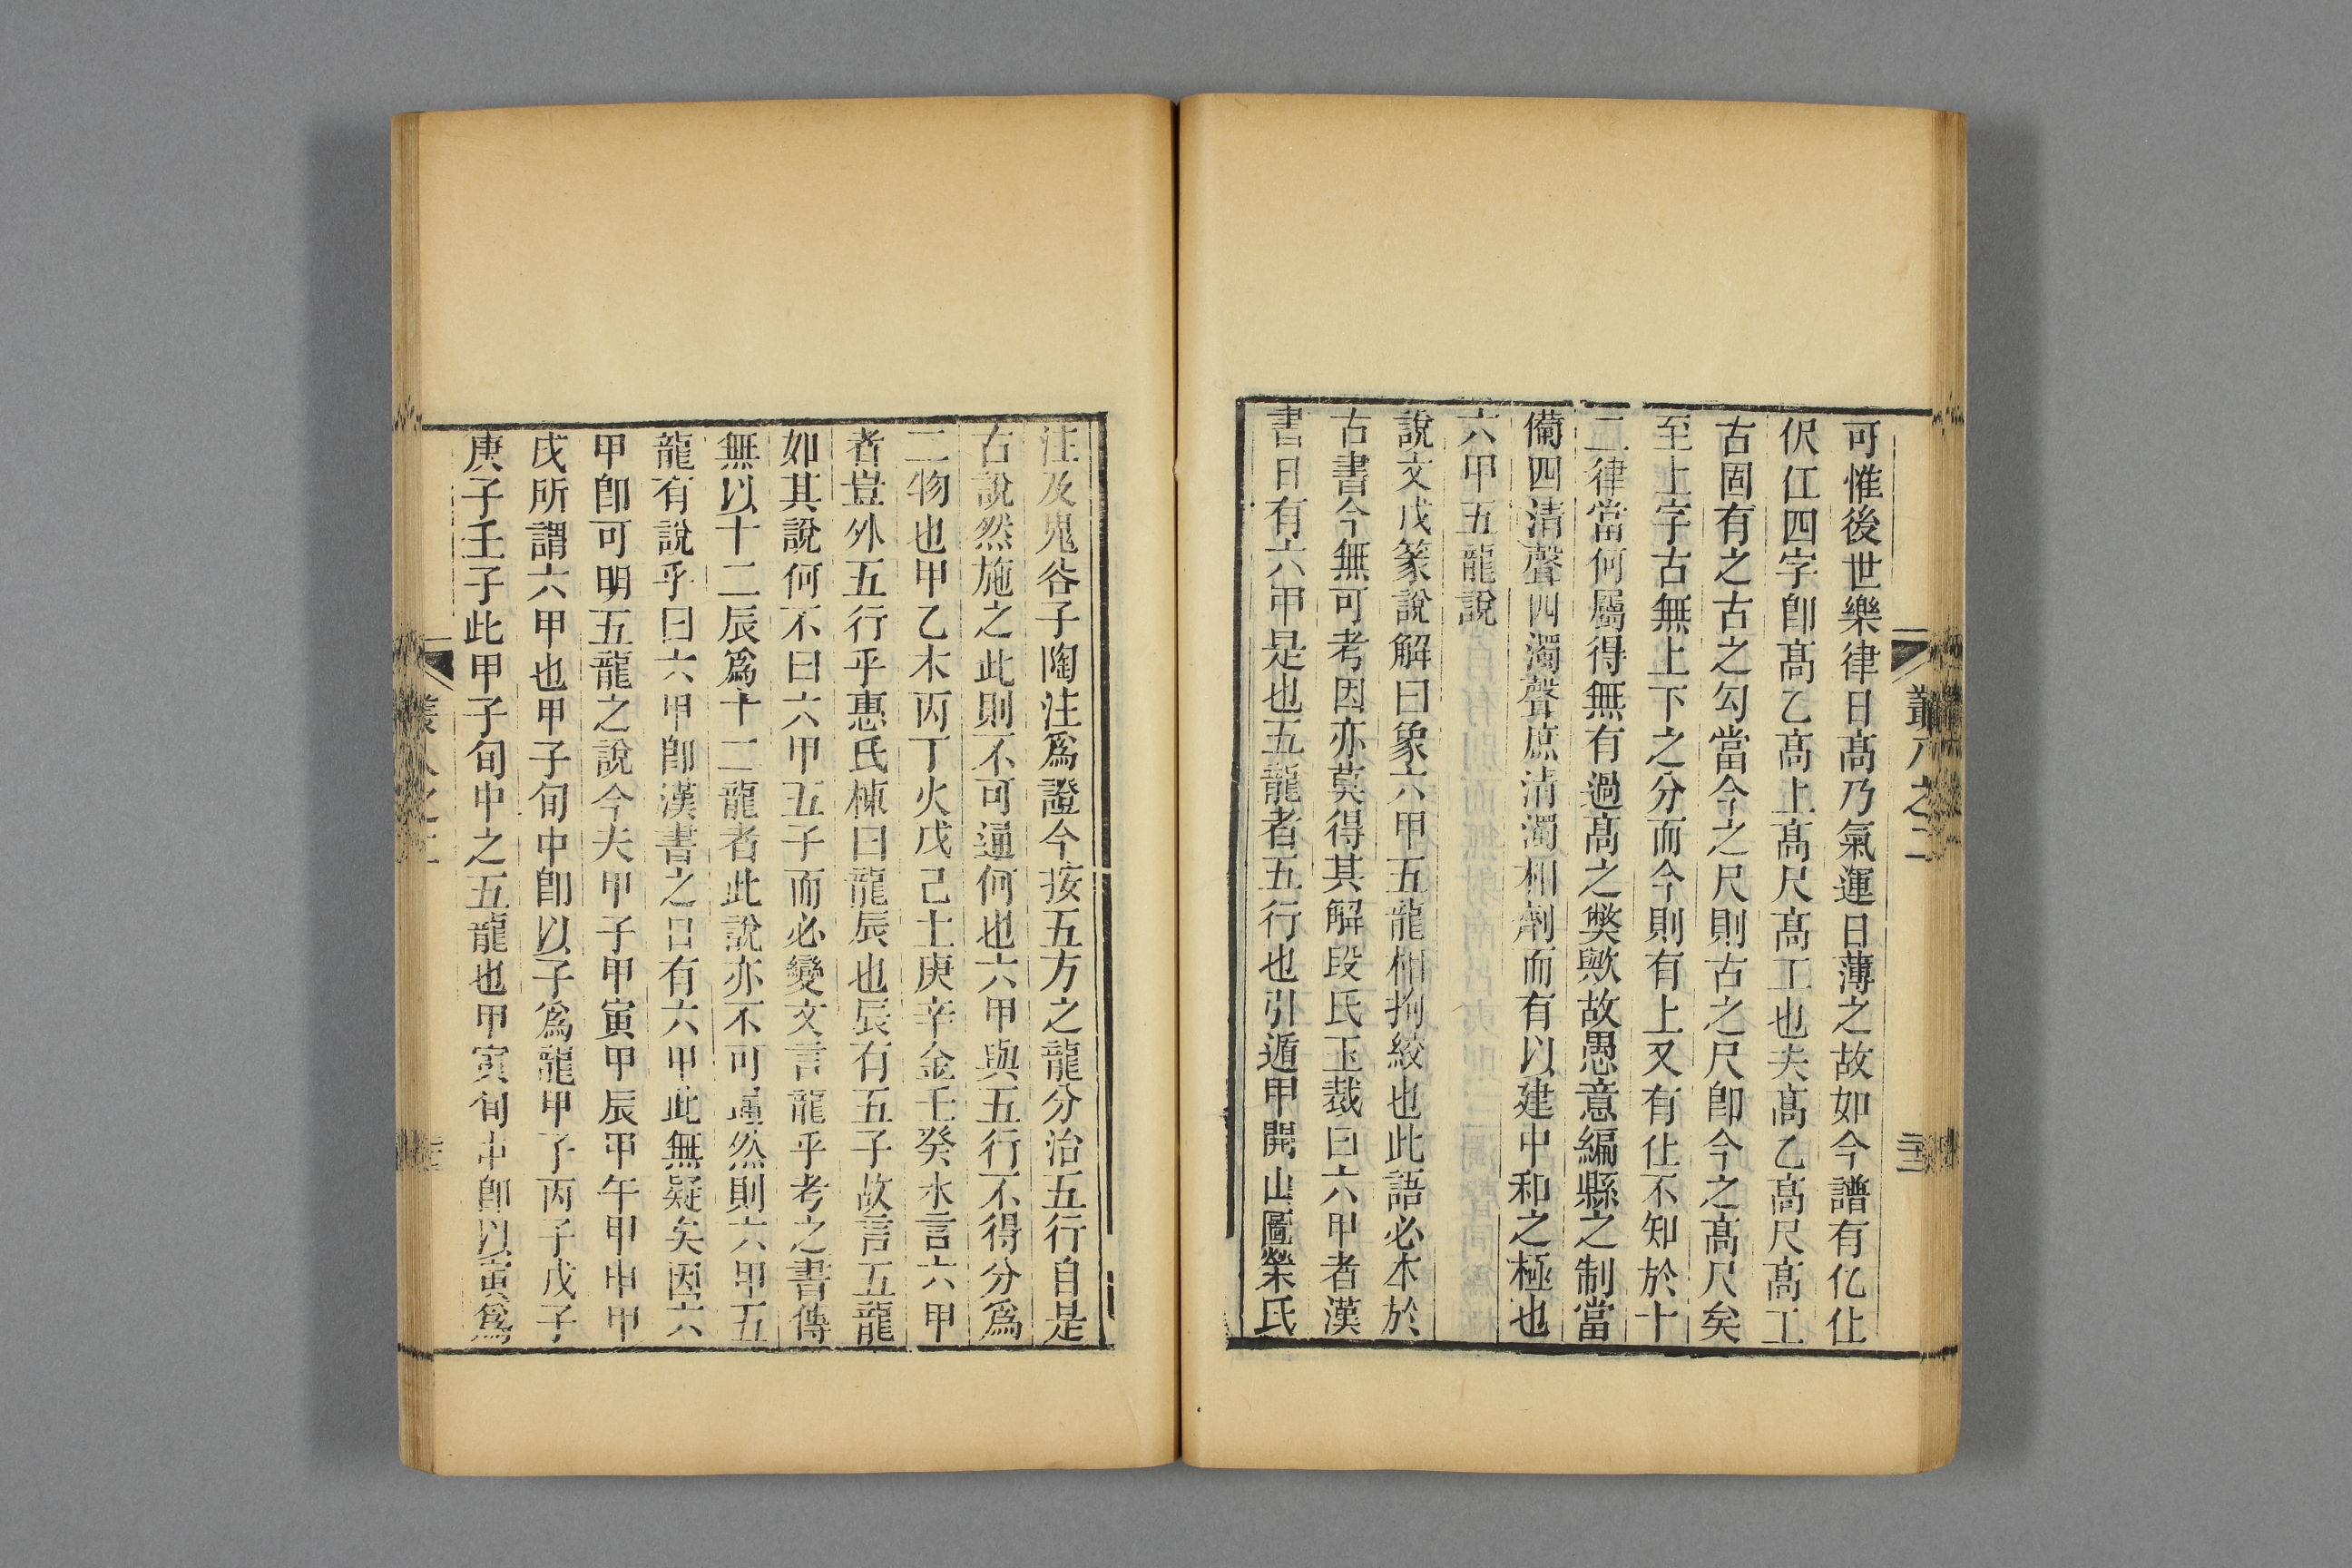 叢八之二
可惟後世樂律日髙乃氣運日薄之故如今譜有亿仩
伬仜四字卽髙乙髙上髙尺髙工也夫髙乙髙尺髙工
古固有之古之勾當今之尺則古之尺卽今之髙尺矣
至上字古無上下之分而今則有上又有仩不知於十
二律當何屬得無有過髙之獘歟故愚意編縣之制當
備四清聲四濁聲庶清濁相劑而有以建中和之極也
六甲五龍說
說文戊篆說解曰象六甲五龍相拘絞也此語必本於
古書今無可考因亦莫得其解段氏玉裁曰六甲者漢
書日有六甲是也五龍者五行也引遁甲開山圖榮氏
注及鬼谷子陶注爲證今按五方之龍分治五行自是
古說然施之此則不可通何也六甲與五行不得分爲
二物也甲乙木丙丁火戊己土庚辛金壬癸水言六甲
者豈外五行乎惠氏棟曰龍辰也辰有五子故言五龍
如其說何不曰六甲五子而必變文言龍乎考之書傳
無以十二辰爲十二龍者此說亦不可通然則六甲五
龍有說乎曰六甲卽漢書之日有六甲此無疑矣因六
甲卽可明五龍之說今夫甲子甲寅甲辰甲午甲申甲
戌所謂六甲也甲子旬中卽以子爲龍甲子丙子戊子
庚子壬子此甲子旬中之五龍也甲寅旬中卽以寅爲